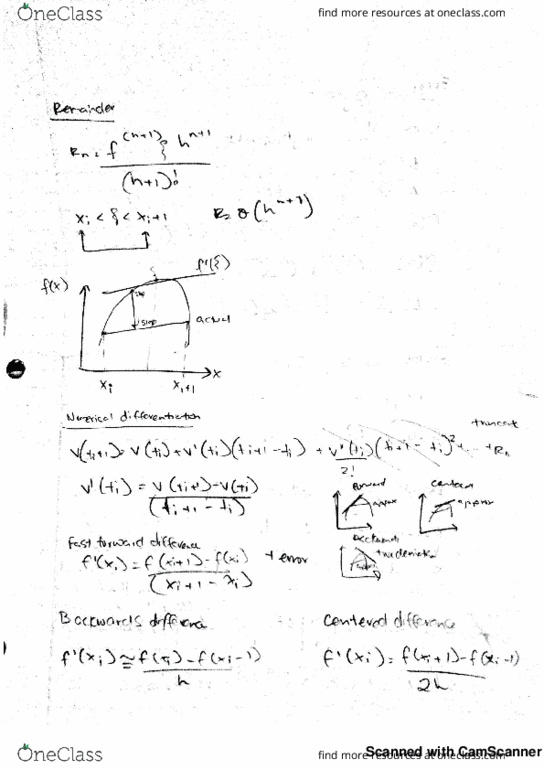 OneClass
find more resources at oneclass.com
Remainder
Rn = f^(n+1) ξ h^(n+1) / (n+1)!
xi < ξ < xi+1
R = O(h^(n+1))
f(x)
f'(ξ)
slope
actual
xi
xi+1
x
Numerical differentiation
truncate
v(ti+1) = v(ti) + v'(ti)(ti+1 - ti) + v''(ti)/2! (ti+1 - ti)^2 + ... + Rn
v'(ti) = v(ti+1) - v(ti) / (ti+1 - ti)
forward
approx
centered
approx
backward
true derivative
First forward difference
f'(xi) = f(xi+1) - f(xi) / (xi+1 - xi) + error
Backwards difference
f'(xi) ≅ f(xi) - f(xi-1) / h
Centered difference
f'(xi) = f(xi+1) - f(xi-1) / 2h
OneClass
find more resources at oneclass.com
Scanned with CamScanner